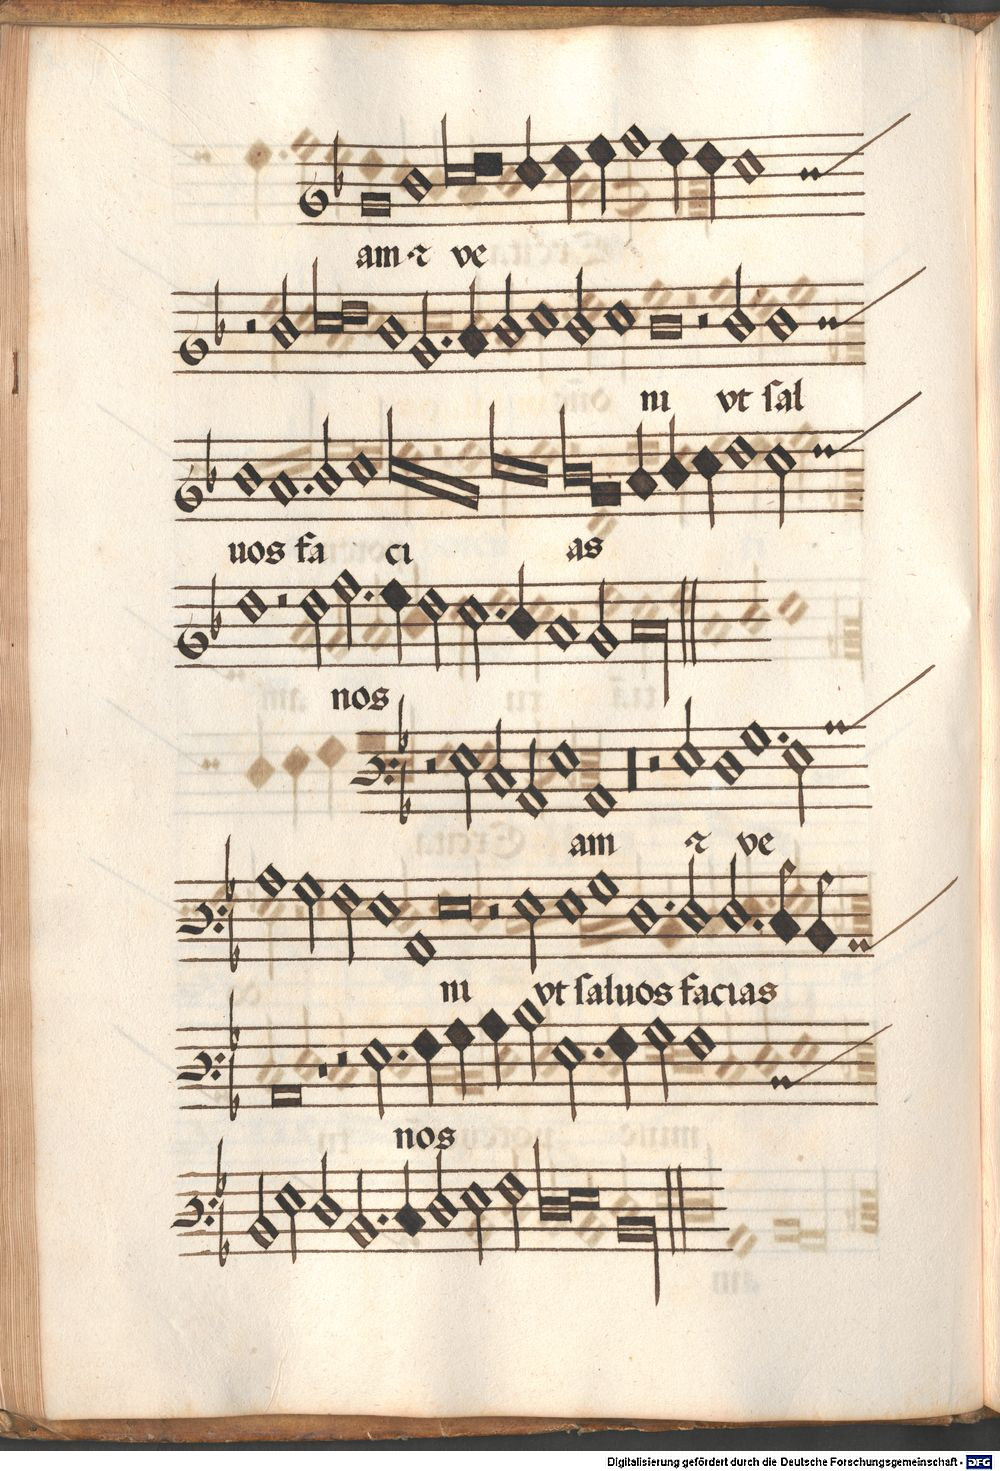 am ⁊ ve
ni vt sal
uos fa ci as
nos
am ⁊ ve
ni vt saluos facias
nos
Digitalisierung gefördert durch die Deutsche Forschungsgemeinschaft - DFG